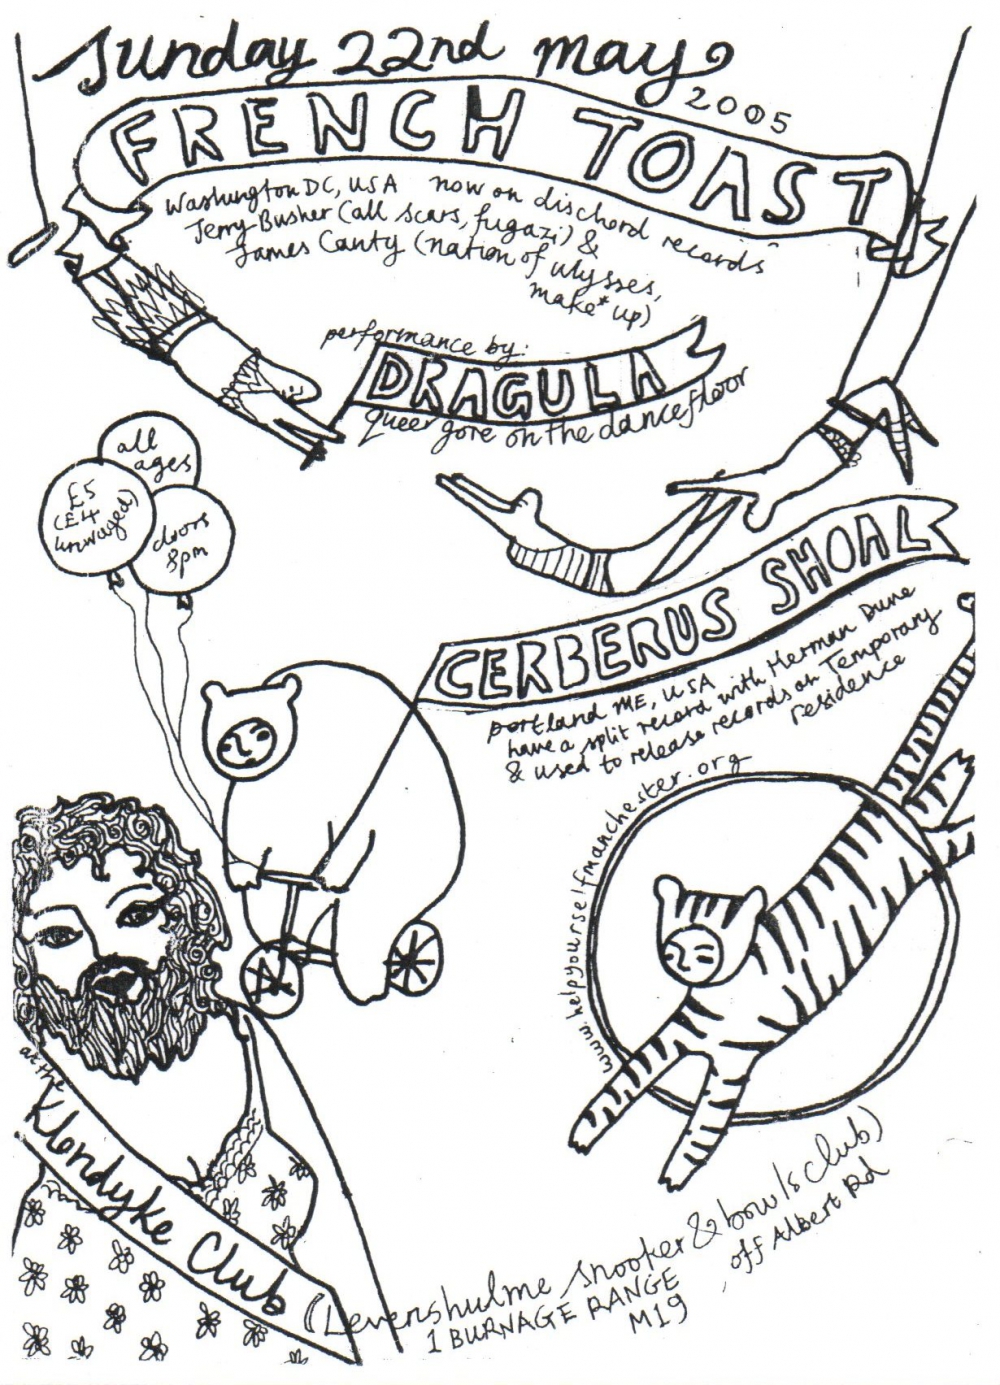 Sunday 22nd may
2005
FRENCH TOAST
Washington DC, USA now on dischord records
Jerry Busher (all scars, fugazi) &
James Canty (nation of ulysses,
make*up)
performance by:
DRAGULA
queer gore on the dancefloor
all
ages
£5
(£4
unwaged)
doors
8pm
CERBERUS SHOAL
portland ME, USA
have a split record with Herman Dune
& used to release records on Temporary
residence
www.helpyourselfmanchester.org
at the
Klondyke Club
(Levenshulme snooker & bowls club)
1 BURNAGE RANGE off Albert Rd
M19